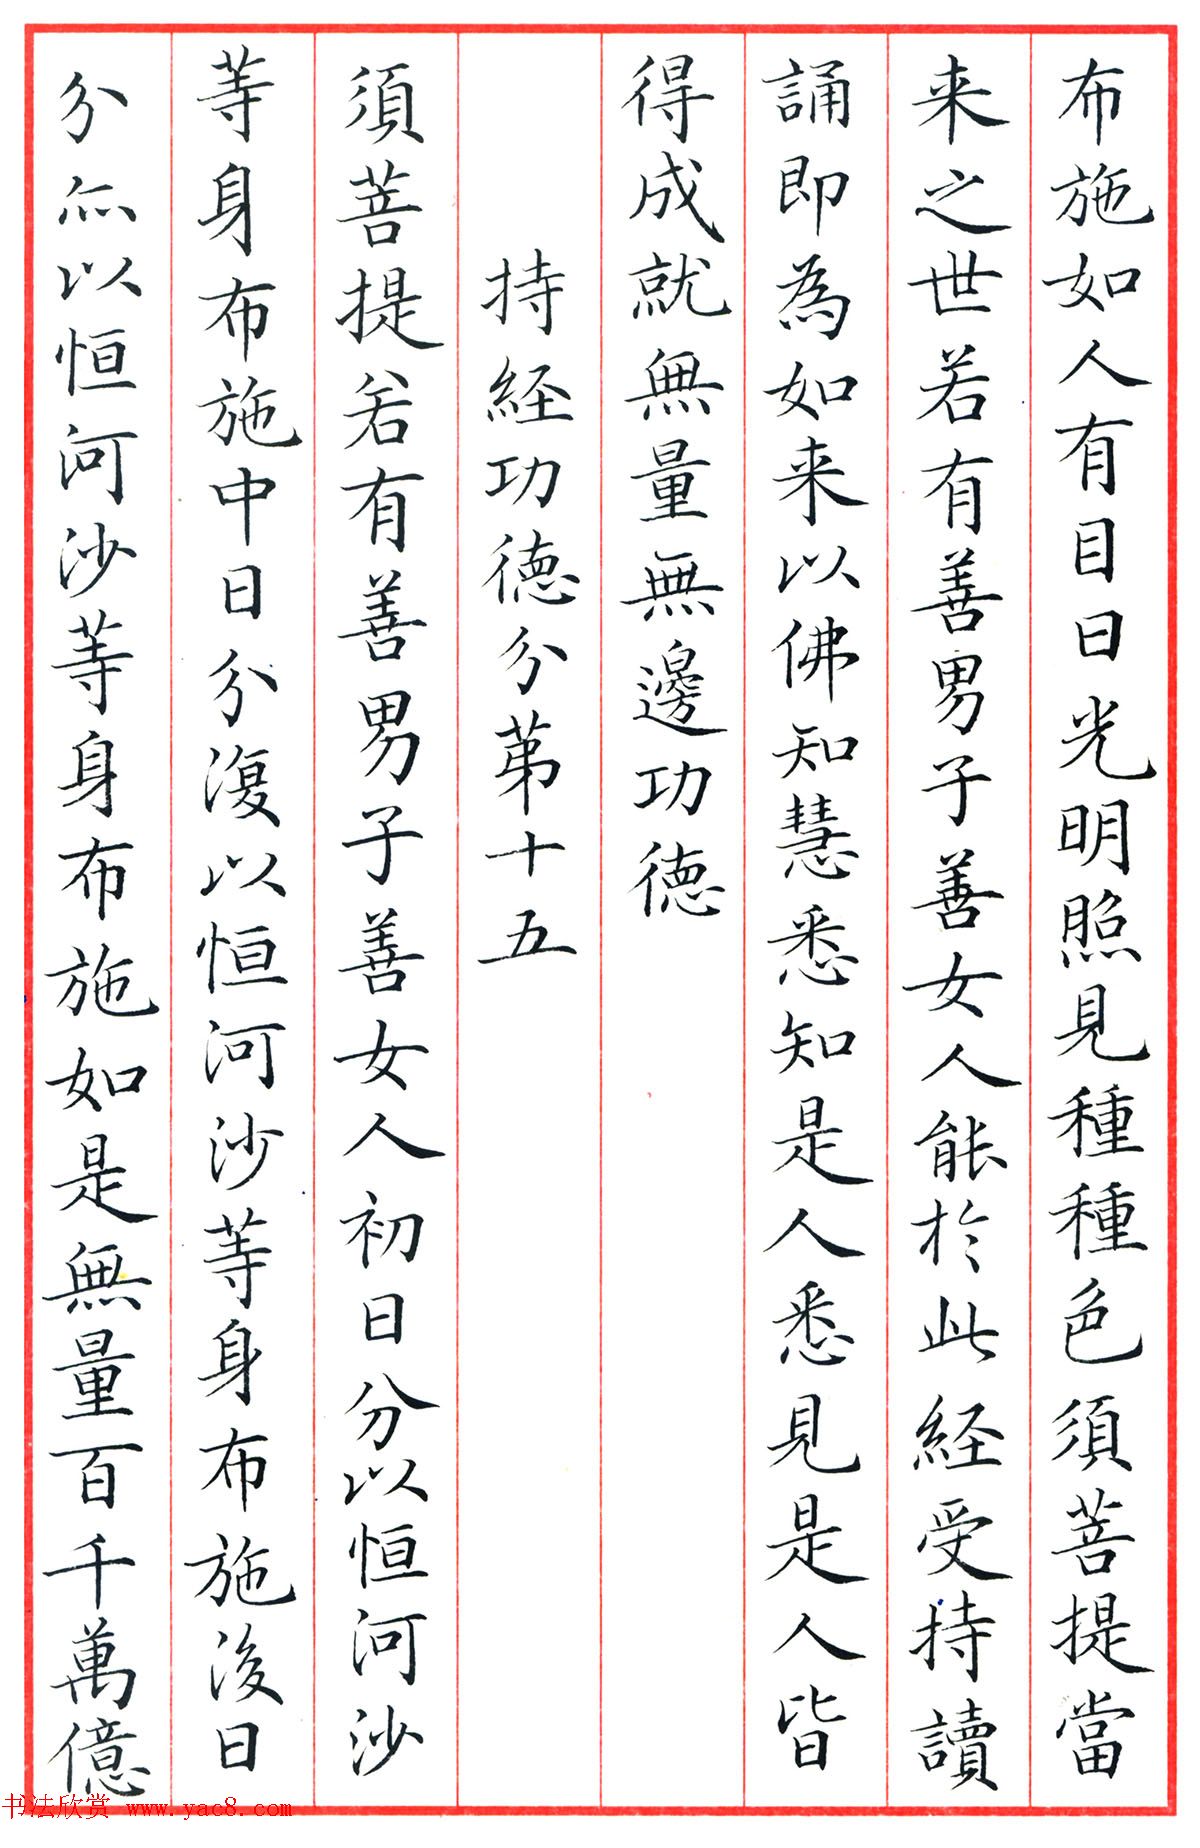 布施如人有目日光明照見種種色須菩提當
来之世若有善男子善女人能於此経受持讀
誦即為如来以佛知慧悉知是人悉見是人皆
得成就無量無邊功德
持経功德分第十五
須菩提若有善男子善女人初日分以恒河沙
等身布施中日分復以恒河沙等身布施後日
分亦以恒河沙等身布施如是無量百千萬億
书法欣赏 www.yac8.com